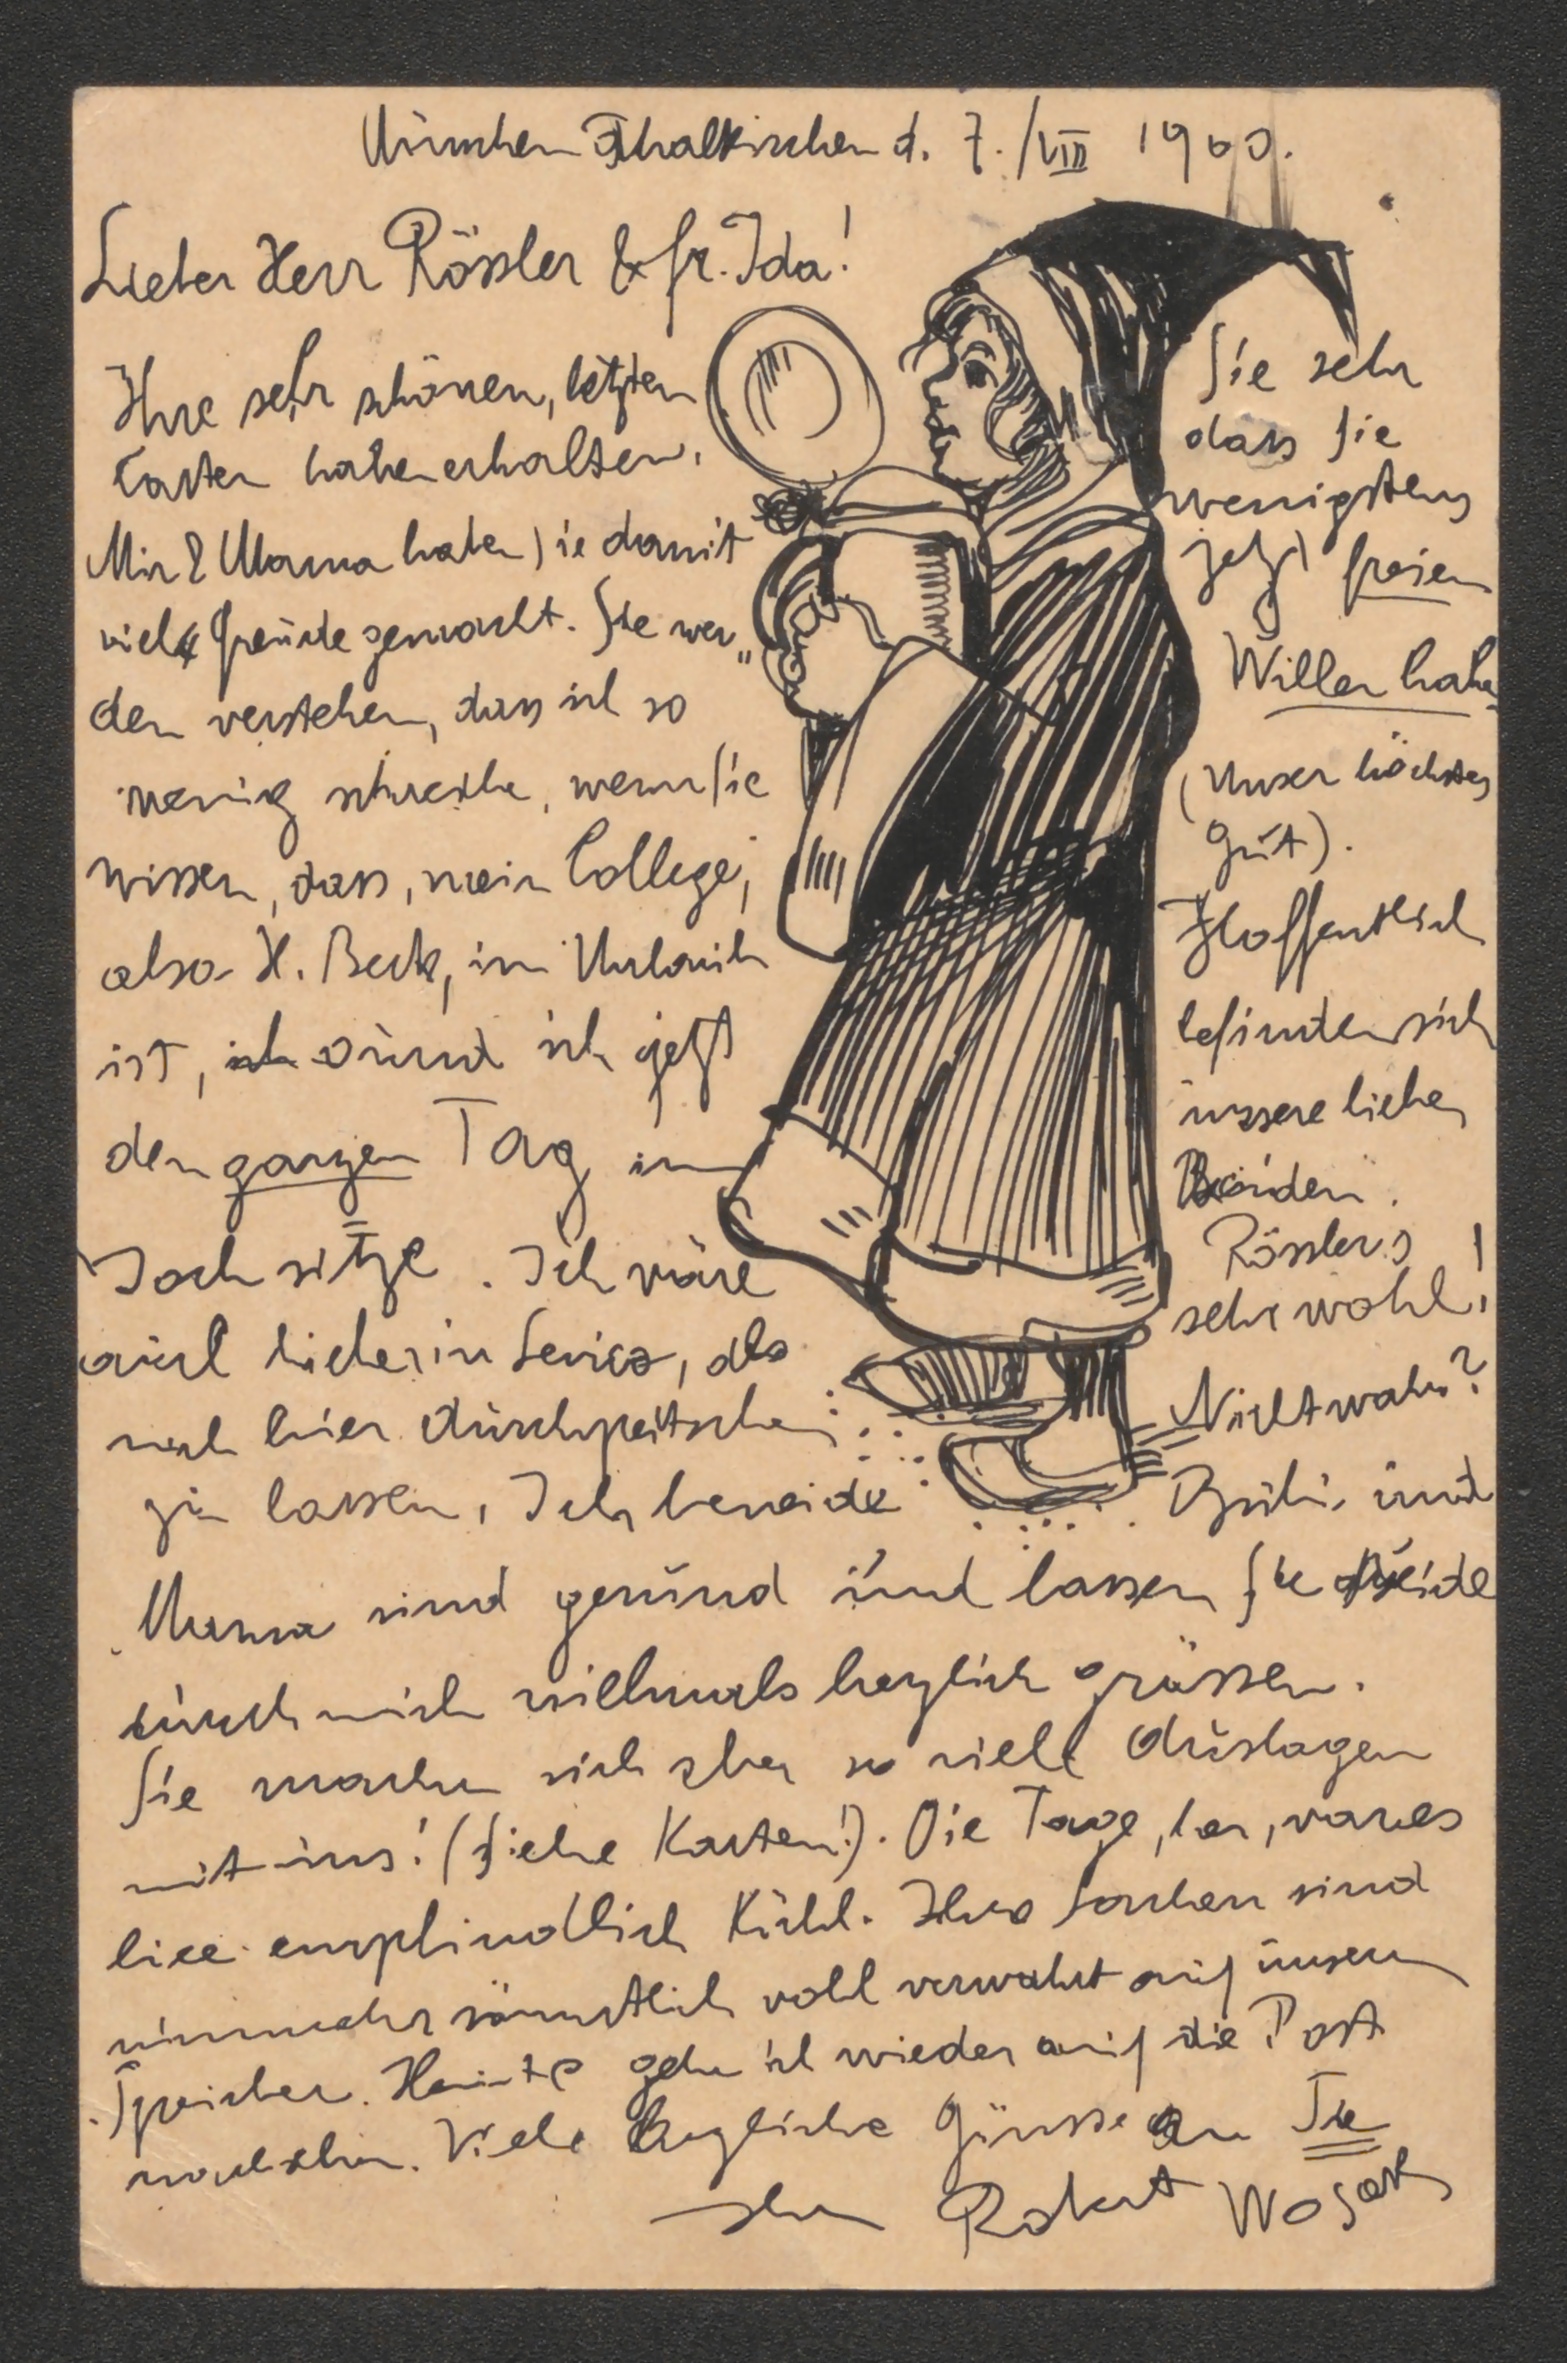 München Thalkirchen d. 7./VIII 1900.
Lieber Herr Rössler & fr. Ida!
Ihre sehr schönen, letzten
Carten habe erhalten.
Mir & Mama haben Sie damit
viele Freude gemacht. Sie wer„
den verstehen, dass ich so
wenig schreibe, wenn Sie
wissen, dass, mein College,
also H. Beck, in Urlaub
ist, und ich jetzt
den ganzen Tag im
Joch sitze. Ich wäre
auch lieber in, als
mich hier durchpeitschen
zu lassen, Ich beneide
Sie sehr
dass Sie
wenigstens
jetzt freien
Willen haben
(Unser höchstes
Gut).
Hoffentlich
befinden sich
unsere lieben
Beiden
Rösslers
sehr wohl!
Nicht wahr?
und
Mama sind gesund und lassen Sie Beide
durch mich vielmals herzlich grüssen.
Sie machen sich aber so viele Auslagen
mit uns! (Siehe Karten!). Die Tage, her, war es
hier empfindlich kühl. Ihre Sachen sind
nunmehr sämmtlich wohl verwahrt auf unsern
Speicher. Heute gehe ich wieder auf die Post
nachsehen. Viele herzliche Grüsse an Sie
Ihr Robert